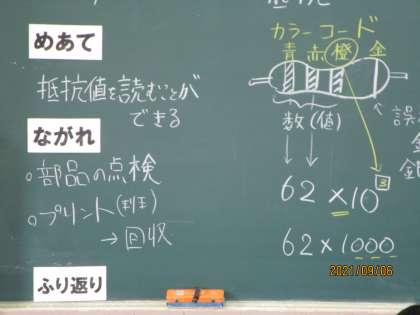 めあて
抵抗値を読むことが
できる
ながれ
○部品の点検
○プリント(班)
→回収
ふり返り
カラーコード
青 赤 橙 金
数(値)
誤
金
銀
62×10³
62×1000
2021/09/06